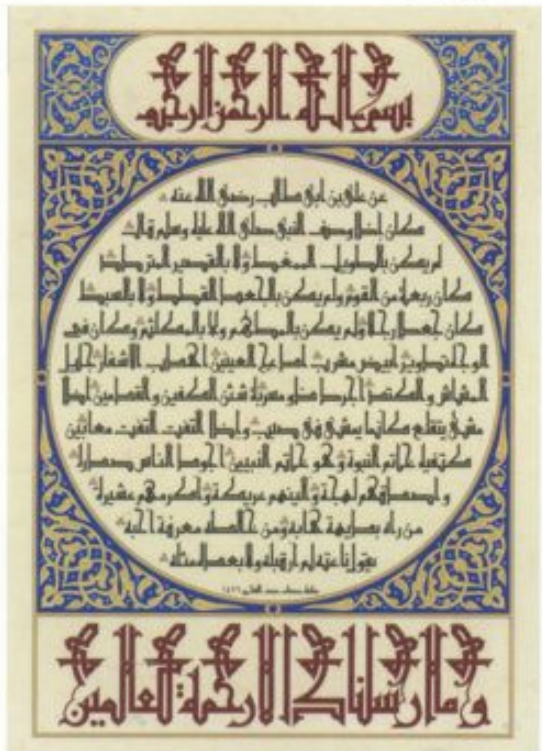 بسم الله الرحمن الرحيم
عن علي بن ابي طالب رضي الله عنه
كان اذا وصف النبي صلى الله عليه وسلم قال
لم يكن بالطويل الممغط ولا بالقصير المتردد
كان ربعة من القوم ولم يكن بالجعد القطط ولا بالسبط
كان جعدا رجلا ولم يكن بالمطهم ولا بالمكلثم وكان في
الوجه تدوير ابيض مشرب ادعج العينين اهدب الاشفار جليل
المشاش والكتد اجرد ذو مسربة شثن الكفين والقدمين اذا
مشى يتقلع كانما يمشي في صبب واذا التفت التفت معا بين
كتفيه خاتم النبوة وهو خاتم النبيين اجود الناس صدرا
واصدقهم لهجة والينهم عريكة واكرمهم عشيرة
من راه بديهة هابه ومن خالطه معرفة احبه
يقول ناعته لم ار قبله ولا بعده مثله
وما ارسلناك الا رحمة للعالمين